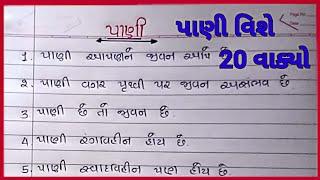 પાણી
પાણી વિશે
20 વાક્યો
1. પાણી આપણને જીવન આપે છે
2. પાણી વગર પૃથ્વી પર જીવન અસંભવ છે
3. પાણી છે તો જીવન છે.
4. પાણી રંગવિહીન હોય છે
5. પાણી સ્વાદવિહીન પણ હોય છે